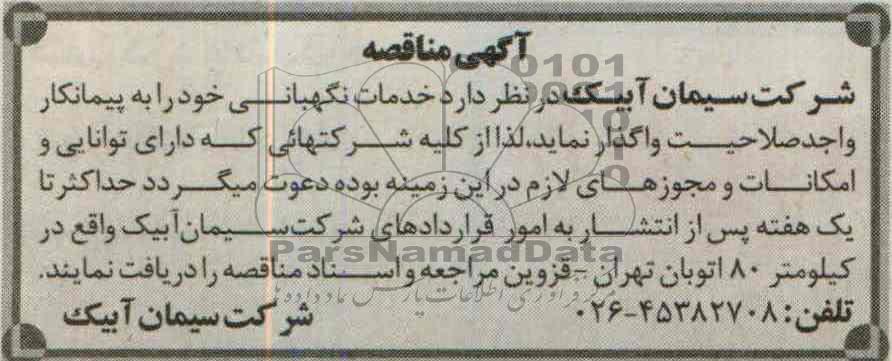 آگهی مناقصه
شرکت سیمان آبیک در نظر دارد خدمات نگهبانی خود را به پیمانکار
واجد صلاحیت واگذار نماید، لذا از کلیه شرکتهائی که دارای توانایی و
امکانات و مجوزهای لازم در این زمینه بوده دعوت میگردد حداکثر تا
یک هفته پس از انتشار به امور قراردادهای شرکت سیمان آبیک واقع در
کیلومتر ۸۰ اتوبان تهران - قزوین مراجعه و اسناد مناقصه را دریافت نمایند.
تلفن: ۴۵۳۸۲۷۰۸-۰۲۶ شرکت سیمان آبیک
ParsNamadData